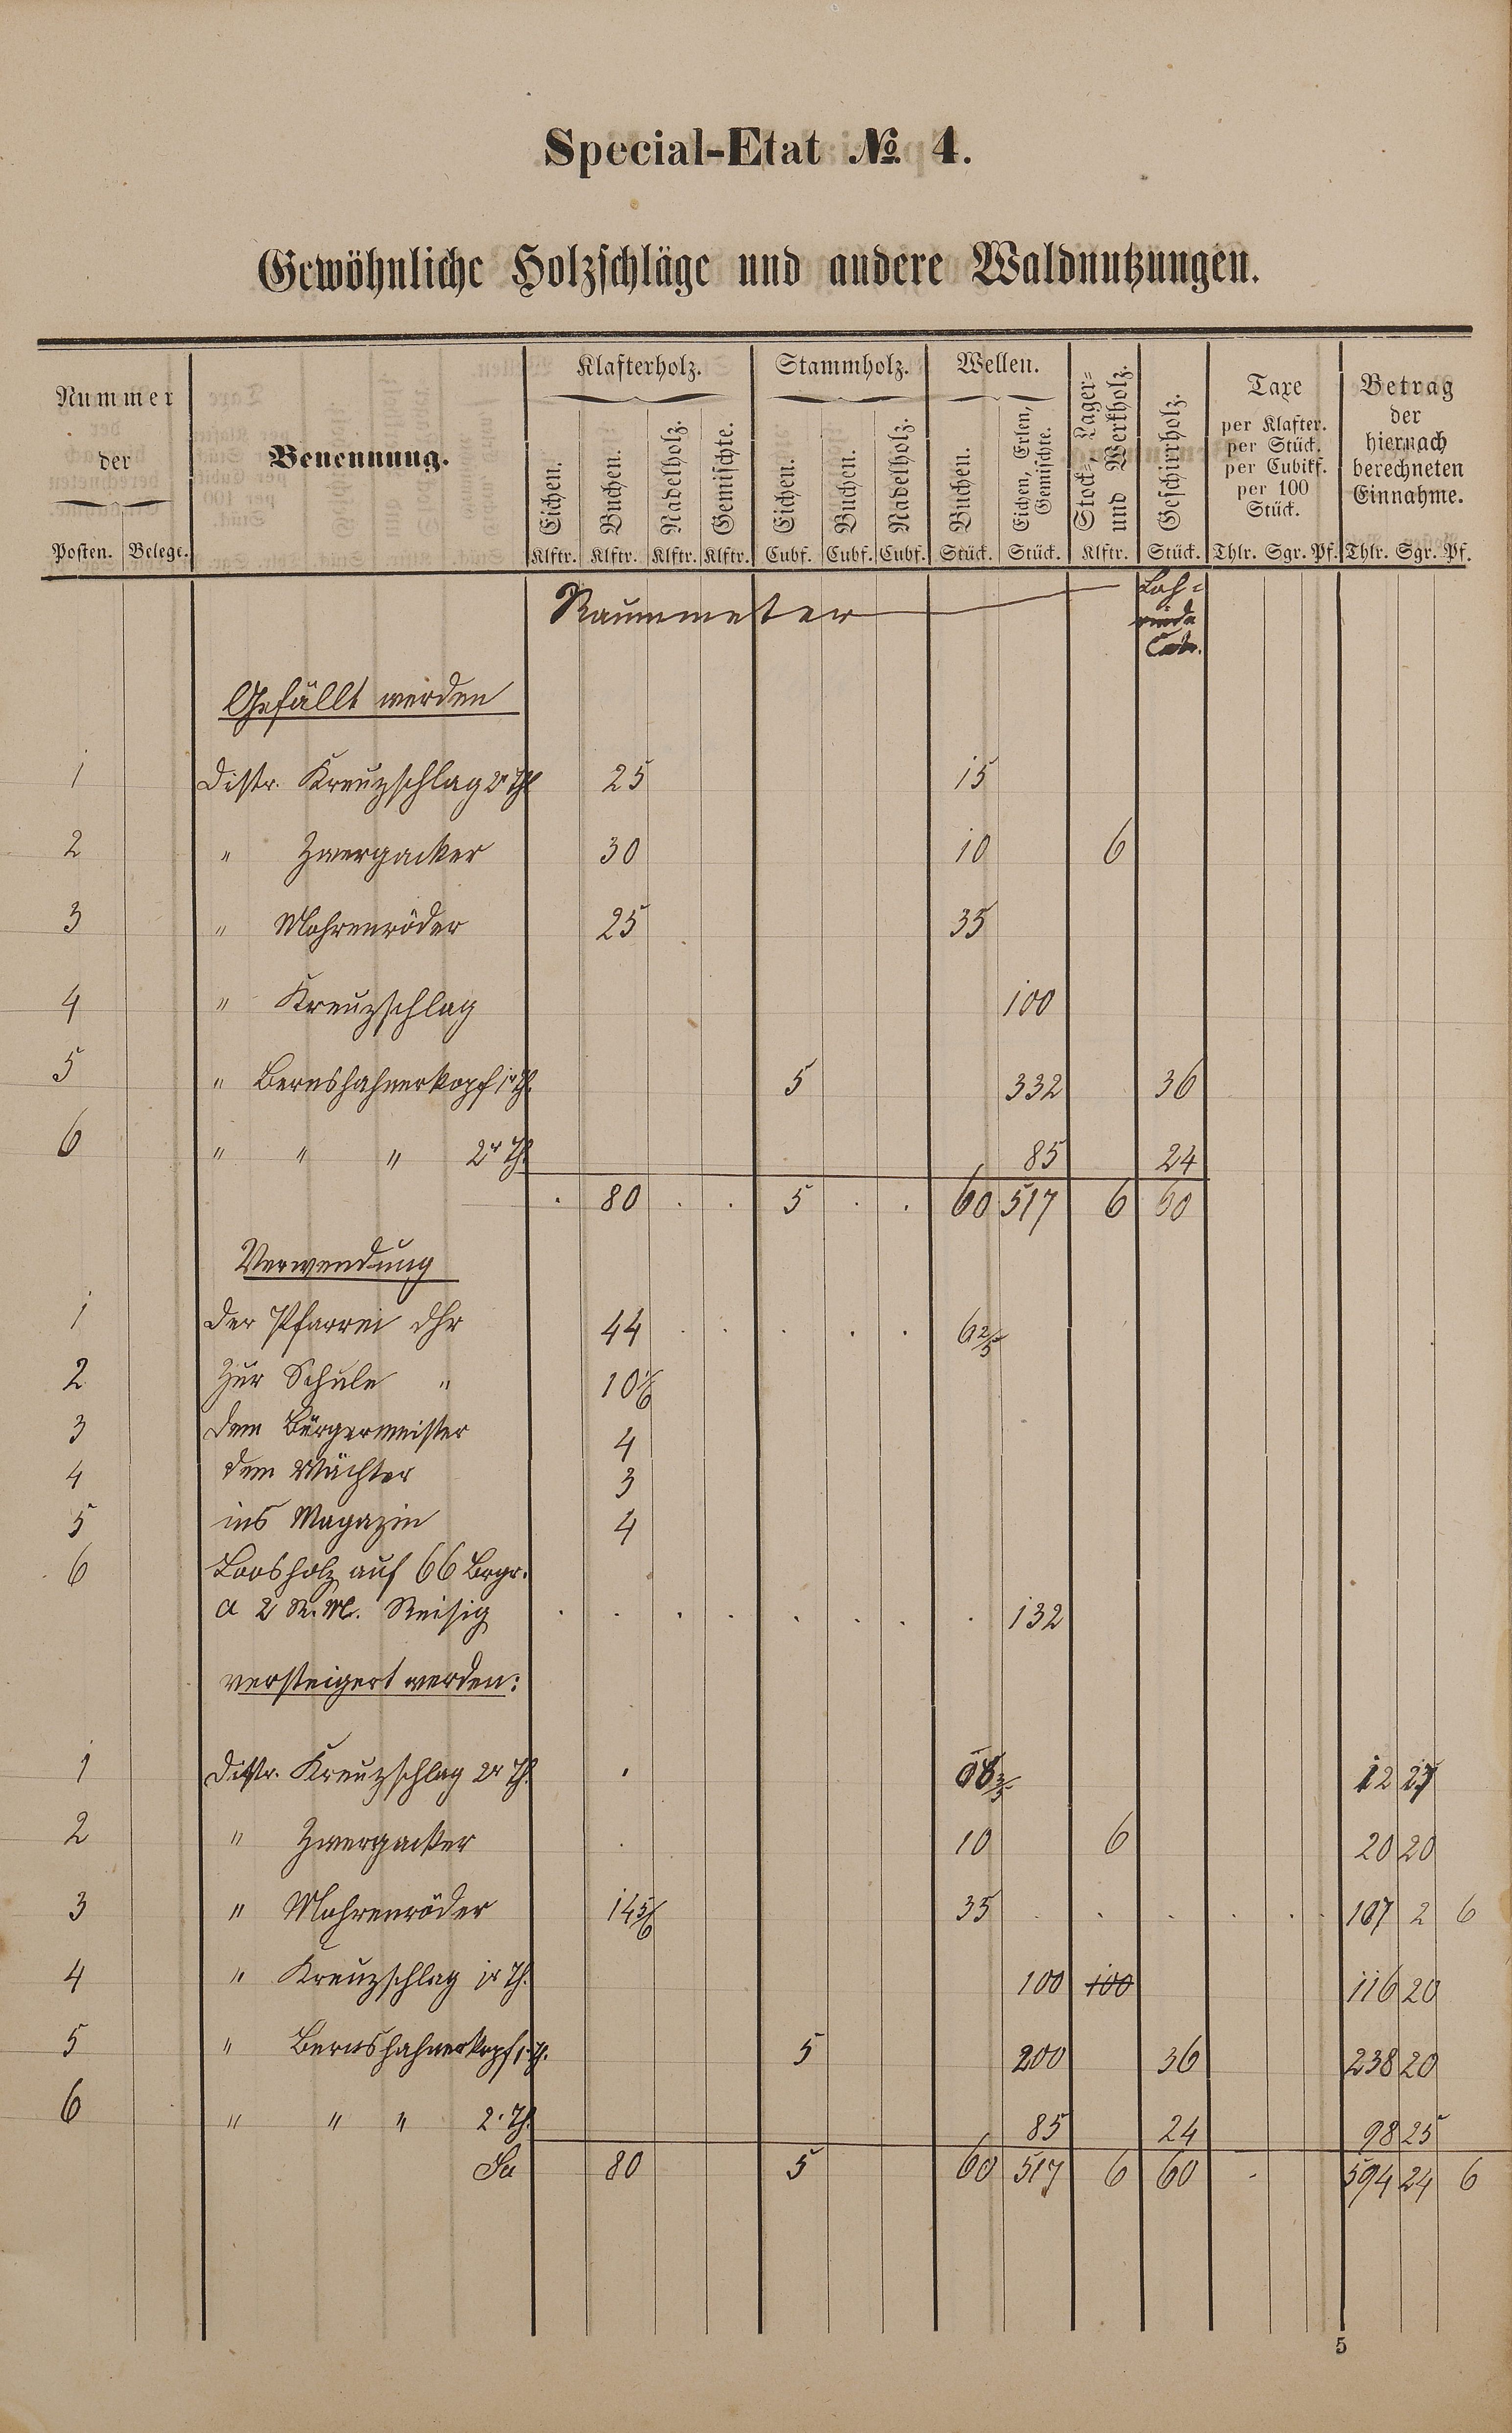 Special-Etat № 4.
Gewöhnliche Holzschläge und andere Waldnutzungen.
Nummer der
Posten. Belege.
Benennung.
Klafterholz.
Eichen. Buchen. Nadelholz. Gemischte.
Klftr. Klftr. Klftr. Klftr.
Stammholz.
Eichen. Buchen. Nadelholz.
Cubf. Cubf. Cubf.
Wellen.
Buchen. Eichen, Erlen, Gemischte.
Stück. Stück.
Stock-, Lager- und Werkholz.
Klftr.
Geschirrholz.
Stück.
Taxe
per Klafter.
per Stück.
per Cubikf.
per 100
Stück.
Thlr. Sgr. Pf.
Betrag
der
hiernach
berechneten
Einnahme.
Thlr. Sgr. Pf.
Raummeter
Loh-
rinde
Gefällt werden
1 Distr. Kreuzschlag 2r Th. 25 15
2 " Zwergacker 30 10 6
3 " Mohrenröder 25 35
4 " Kreuzschlag 100
5 " Bernshahnerkopf 1r Th. 5 332 36
6 " " " 2r Th. 85 24
. 80 . . 5 . . 60 517 6 60
Verwendung
1 der Pfarrei dhr 44 . . . . . 6 2/5
2 Zur Schule " 10 1/6
3 dem Bürgermeister 4
4 dem Wächter 3
5 ins Magazin 4
6 Loosholz auf 66 Brgr.
a 2 R. M. Reisig . . . . . . . . 132
versteigert werden:
1 Distr. Kreuzschlag 2r Th. . 8 3/5 12 27
2 " Zwergacker . 10 6 20 20
3 " Mohrenröder 14 5/6 35 . . . . . 107 2 6
4 " Kreuzschlag 1r Th. 100 100 116 20
5 " Bernshahnerkopf 1. Th. 5 200 36 238 20
6 " " " 2. Th. 85 24 98 25
Sa 80 5 60 517 6 60 - 594 24 6
5